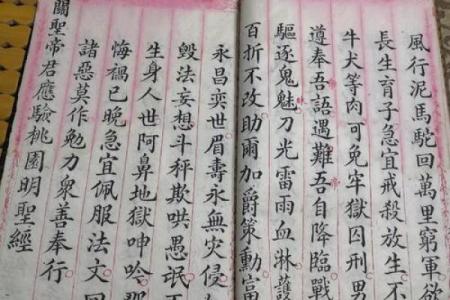 風行泥馬駝回萬里窮軍欲
長生育子急宜戒殺放生不
牛犬等肉可免牢獄囚刑男
遵奉吾語遇難吾自降臨戰
驅逐鬼魅刀光雷雨血淋護
百折不改助爾加爵策勳富
永昌奕世眉壽永無灾侵
毀法妄想斗秤欺哄愚氓
生身人世阿鼻地獄呻吟
悔禍已晚急宜佩服法文
諸惡莫作勉力衆善奉行
關聖帝君應驗桃園明聖經